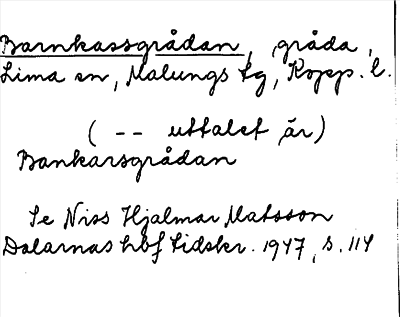 Barnkassgrådan, gråda,
Lima sn, Malungs tg, Kopp. l.
( -- uttalet är)
Bankarsgrådan
Se Niss Hjalmar Matsson
Dalarnas hbf tidskr. 1947, s. 114